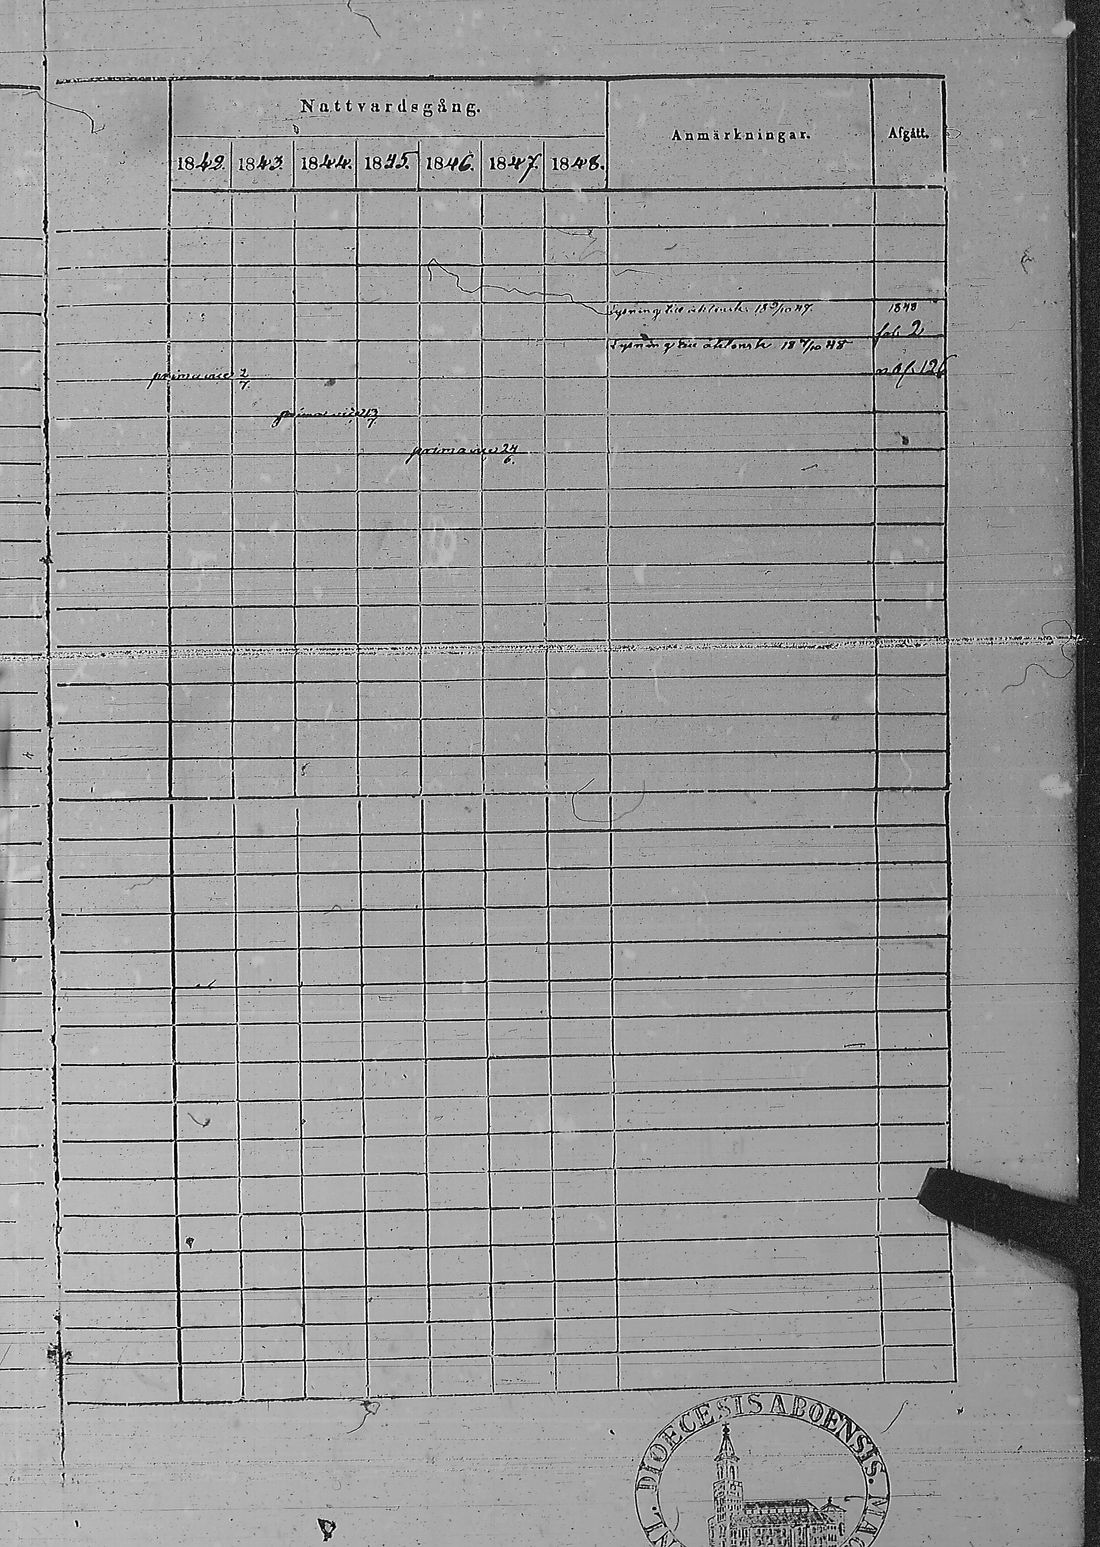 Nattvardsgång.
Anmärkningar.
Afgått.
1842. 1843. 1844. 1845. 1846. 1847. 1848.
Lysning till äktensk. 18 9/10 47. 1848
fol. 2
Lysning till äktensk 18 7/10 48
prima vice 2/7 126
prima vice 13/7
prima vice 24/6.
DIOECESIS ABOENSIS. MAG